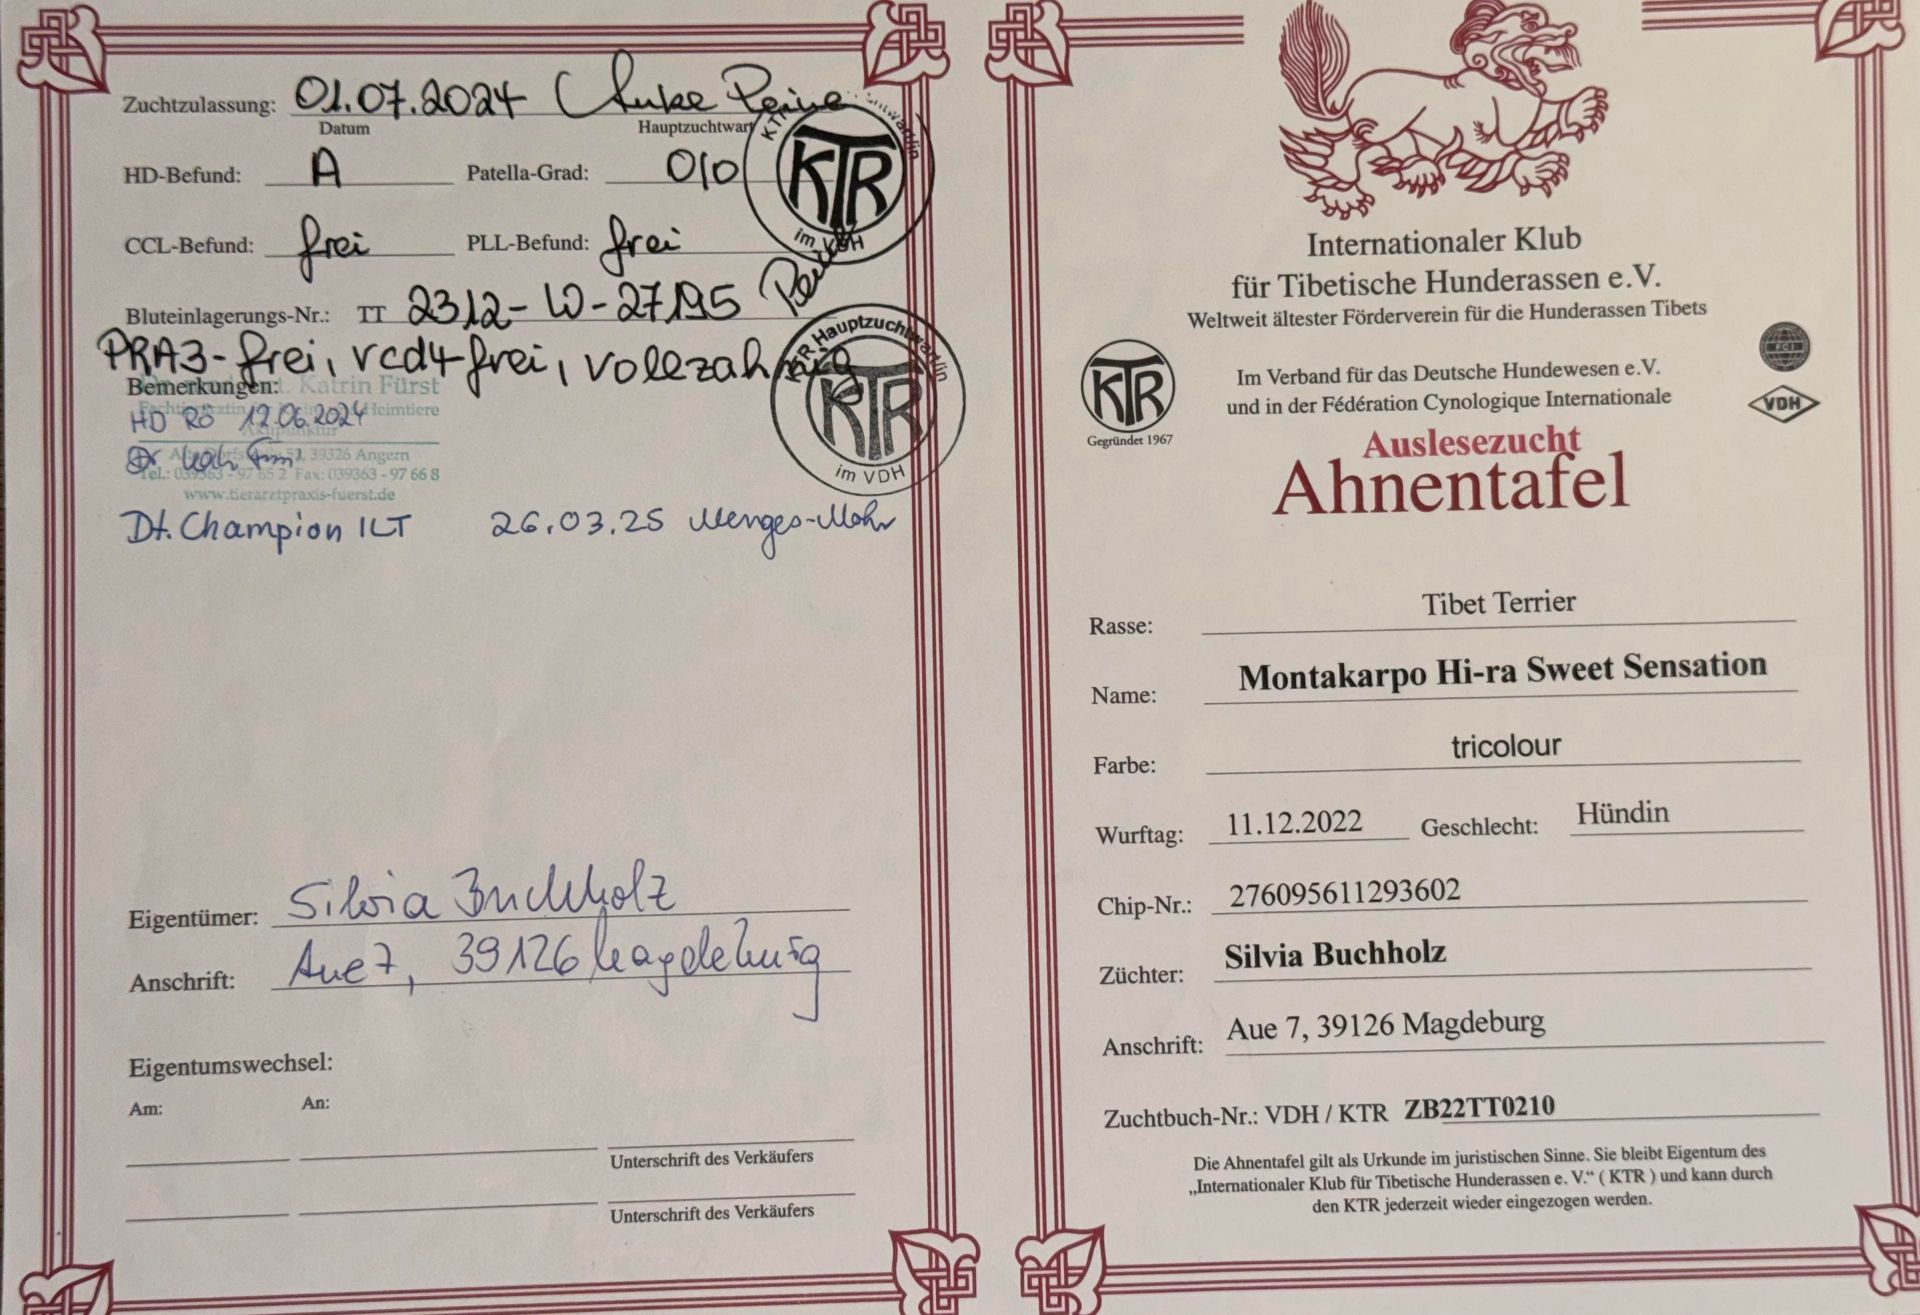 Zuchtzulassung: 01.07.2024 Anke Peine
Datum Hauptzuchtwart
HD-Befund: A Patella-Grad: 0/0
CCL-Befund: frei PLL-Befund: frei
Bluteinlagerungs-Nr.: TT 2312-W-27195
PRA3-frei, rcd4-frei, vollzahnig
Bemerkungen: Katrin Fürst
HD RÖ 12.06.2024 Heimtiere
Akupunktur
39326 Angern
Tel.: 039363 - 97 65 2 Fax: 039363 - 97 66 8
www.tierarztpraxis-fuerst.de
Dt. Champion KLT 26.03.25 Menges-Mohr
KTR
im VDH
KTR Hauptzuchtwartin
KTR
im VDH
Eigentümer: Silvia Buchholz
Anschrift: Aue 7, 39126 Magdeburg
Eigentumswechsel:
Am: An:
Unterschrift des Verkäufers
Unterschrift des Verkäufers
Internationaler Klub
für Tibetische Hunderassen e.V.
Weltweit ältester Förderverein für die Hunderassen Tibets
KTR
Gegründet 1967
Im Verband für das Deutsche Hundewesen e.V.
und in der Fédération Cynologique Internationale
FCI
VDH
Auslesezucht
Ahnentafel
Rasse: Tibet Terrier
Name: Montakarpo Hi-ra Sweet Sensation
Farbe: tricolour
Wurftag: 11.12.2022 Geschlecht: Hündin
Chip-Nr.: 276095611293602
Züchter: Silvia Buchholz
Anschrift: Aue 7, 39126 Magdeburg
Zuchtbuch-Nr.: VDH / KTR ZB22TT0210
Die Ahnentafel gilt als Urkunde im juristischen Sinne. Sie bleibt Eigentum des
„Internationaler Klub für Tibetische Hunderassen e. V.“ ( KTR ) und kann durch
den KTR jederzeit wieder eingezogen werden.